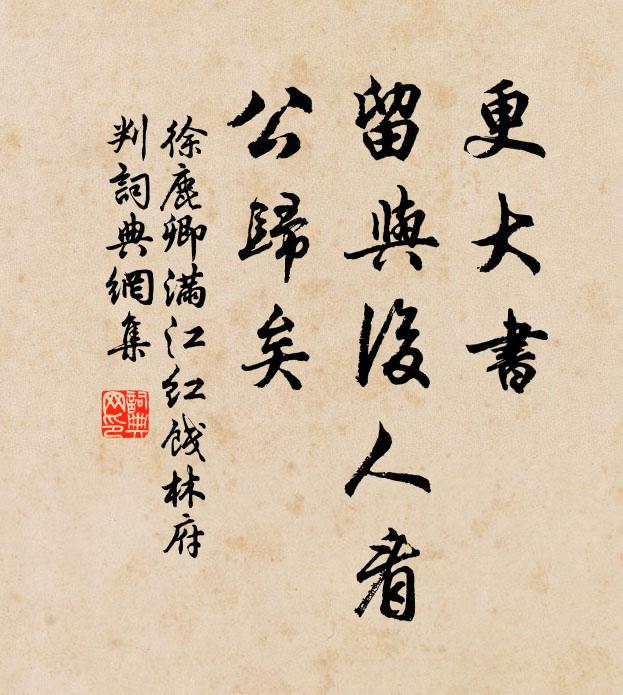 更大書
留與後人看
公歸矣
徐鹿卿滿江紅餞林府
判詞典網集
詞典
网印